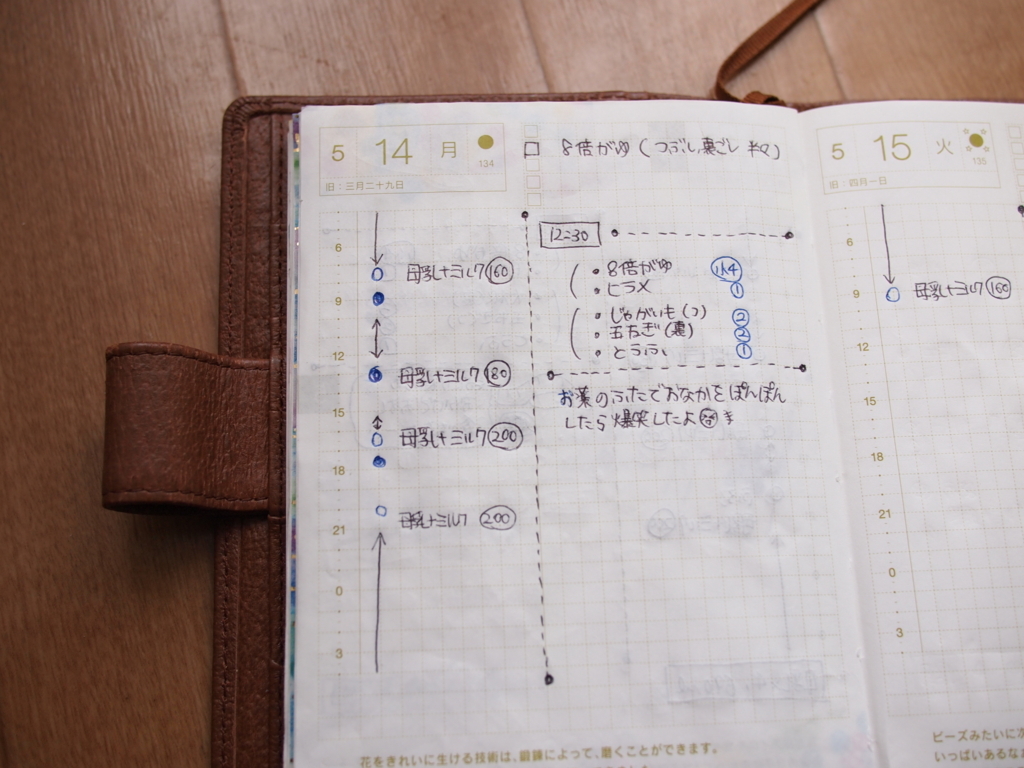 5 14 月 134
旧：三月二十九日
8倍がゆ（つぶし裏ごし 半々）
6
9
12
15
18
21
0
3
母乳+ミルク 160
母乳+ミルク 180
母乳+ミルク 200
母乳+ミルク 200
12:30
・8倍がゆ
・ヒラメ ①
・じゃがいも（つ） ②
・玉ねぎ（裏） ②
・とうふ ①
お薬のふたでおなかをぽんぽん
したら爆笑したよ
花をきれいに生ける技術は、鍛錬によって、磨くことができます。
5 15 火 135
旧：四月一日
6
9
12
15
18
21
0
3
母乳+ミルク 160
ビーズみたいに
いっぱいある